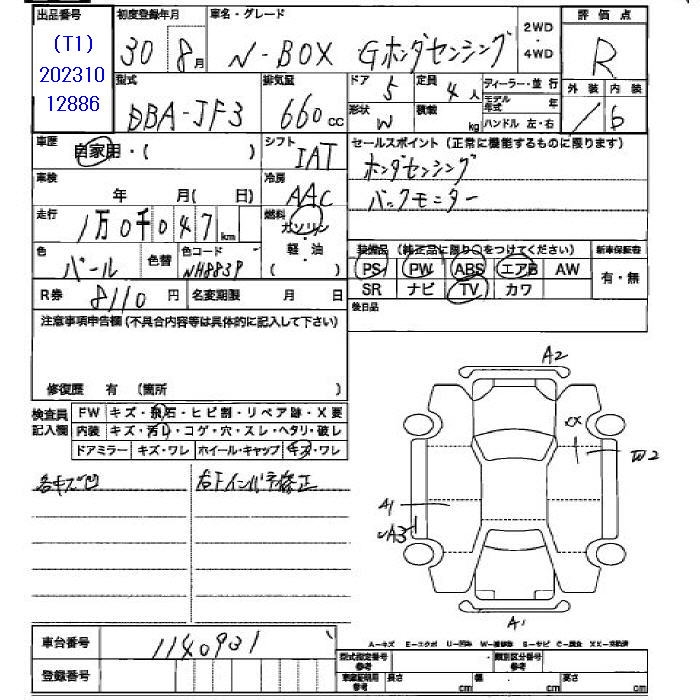 出品番号
(T1)
202310
12886
初度登録年月
30 8月
車名・グレード
N-BOX Gホンダセンシング
2WD
・
4WD
評価点
R
外装 内装
B
型式
DBA-JF3
排気量
660cc
ドア 5
定員 4人
形状 W
積載 kg
ディーラー・並行
モデル年式 年
ハンドル 左・右
車歴
自家用・( )
シフト
IAT
セールスポイント(正常に機能するものに限ります)
ホンダセンシング
バックモニター
車検
年 月(日)
冷房
AAC
走行
1万0千047km
燃料
ガソリン
・
軽油
( )
色
パール
色替
色コード
NH883P
装備品 (純正品に限り○をつけてください)
PS PW ABS エアB AW
SR ナビ TV カワ
新車保証書
有・無
R券 8110円
名変期限 月 日
後日品
注意事項申告欄(不具合内容等は具体的に記入して下さい)
修復歴 有 (箇所 )
検査員記入欄
FW キズ・飛石・ヒビ割・リペア跡・X要
内装 キズ・汚れ・コゲ・穴・スレ・ヘタリ・破レ
ドアミラー キズ・ワレ ホイール・キャップ キズ・ワレ
各キズ凹
右下インパネ修正
A2
XX
W2
A1
A3
A1
車台番号
1140931
登録番号
A-キズ E-エクボ U-凹み W-補修跡 S-サビ C-腐食 XX-交換済
型式指定番号参考
類別区分番号参考
車庫証明用参考
長さ cm 幅 cm 高さ cm